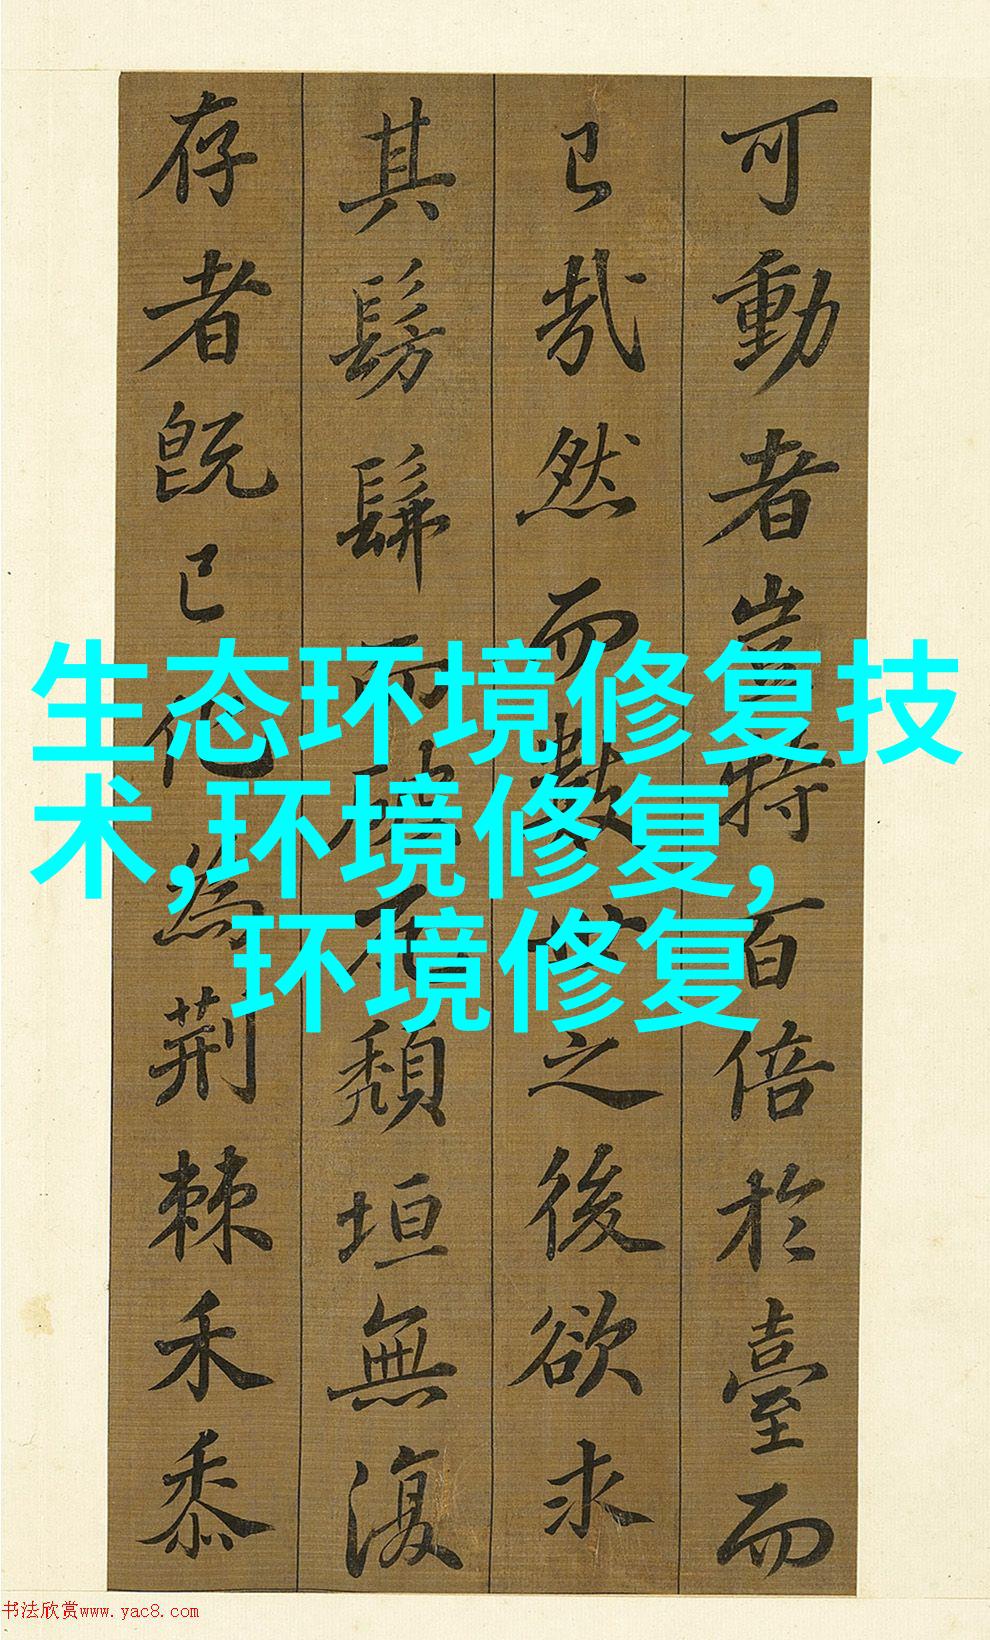 可動者豈特百倍於臺而
已哉然而數世之後欲求
其髣髴而破瓦頹垣無復
存者既已化為荊棘禾黍
生态环境修复技
术,环境修复,
环境修复
书法欣赏www.yac8.com